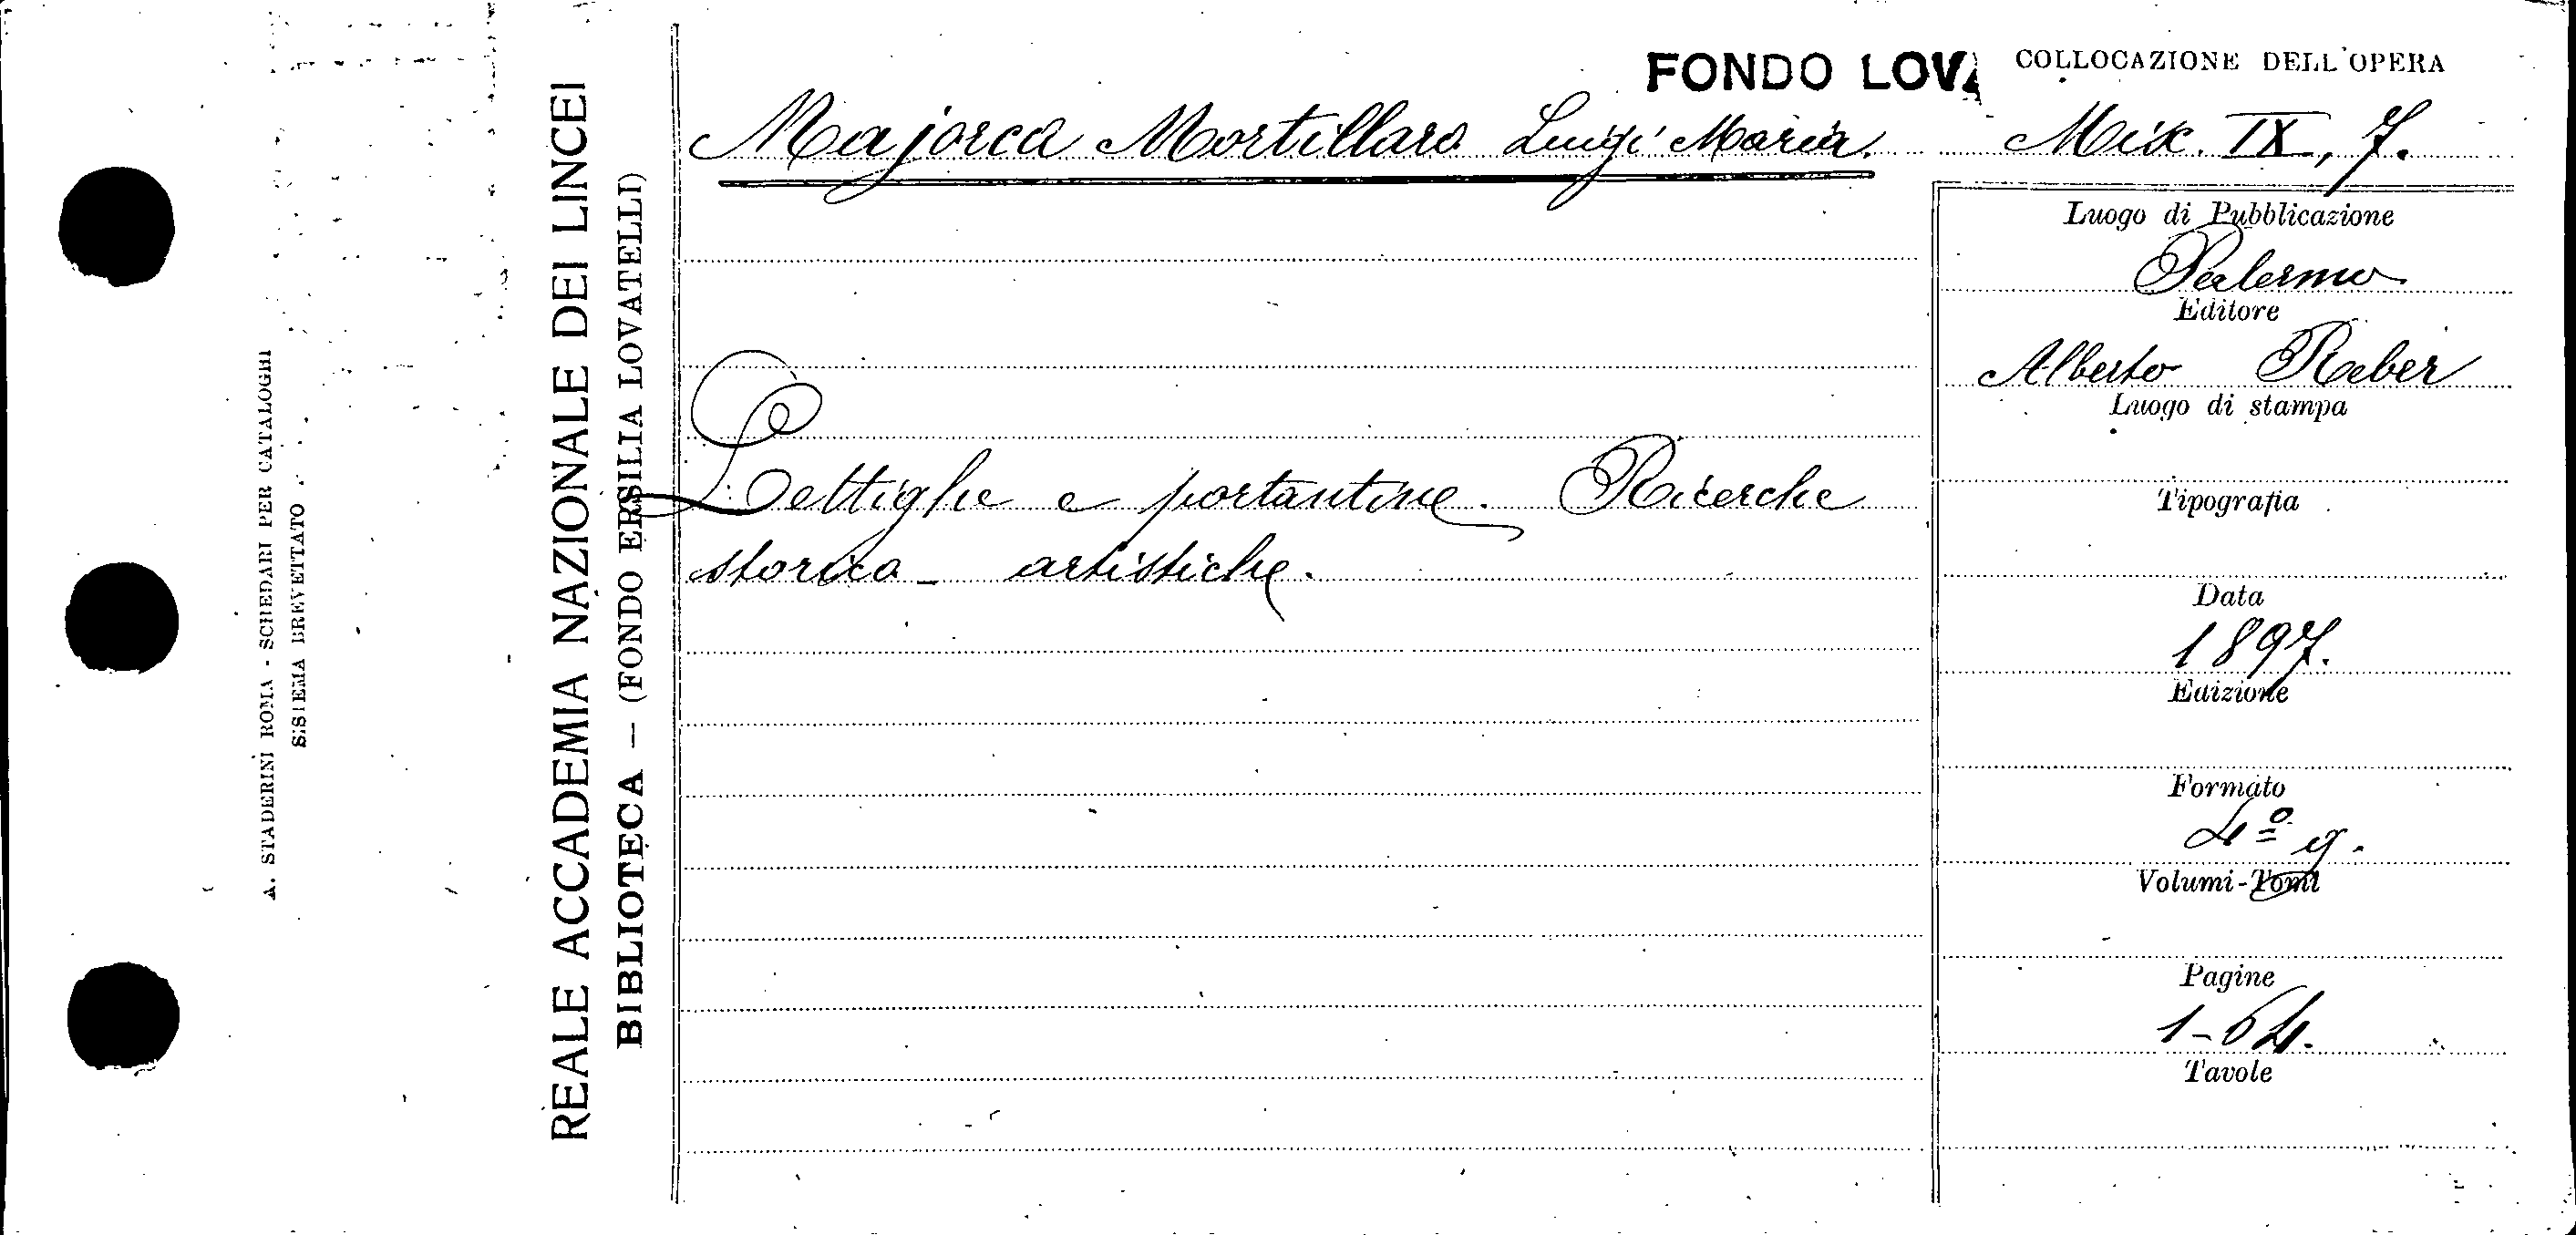 A. STADERINI ROMA - SCHEDARI PER CATALOGHI
SISTEMA BREVETTATO
REALE ACCADEMIA NAZIONALE DEI LINCEI
BIBLIOTECA — (FONDO ERSILIA LOVATELLI)
FONDO LOVA
COLLOCAZIONE DELL'OPERA
Majorca Mortillaro Luigi Maria.
Misc. IX, 7.
Lettighe e portantine. Ricerche
storico - artistiche.
Luogo di Pubblicazione
Palermo
Editore
Alberto Reber
Luogo di stampa
Tipografia
Data
1897.
Edizione
Formato
4º g.
Volumi-Tomi
Pagine
1-64.
Tavole